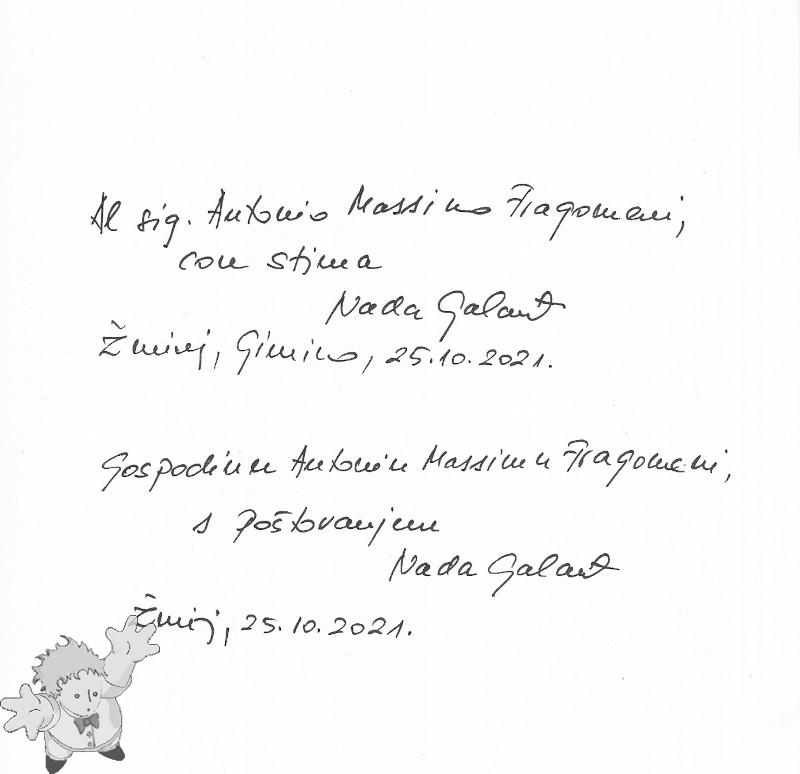 Al sig. Antonio Massimo Fragomeni,
con stima
Nada Galant
Žminj, Gimino, 25.10.2021.
Gospodinu Antoniu Massimu Fragomeni,
s poštovanjem
Nada Galant
Žminj, 25.10.2021.